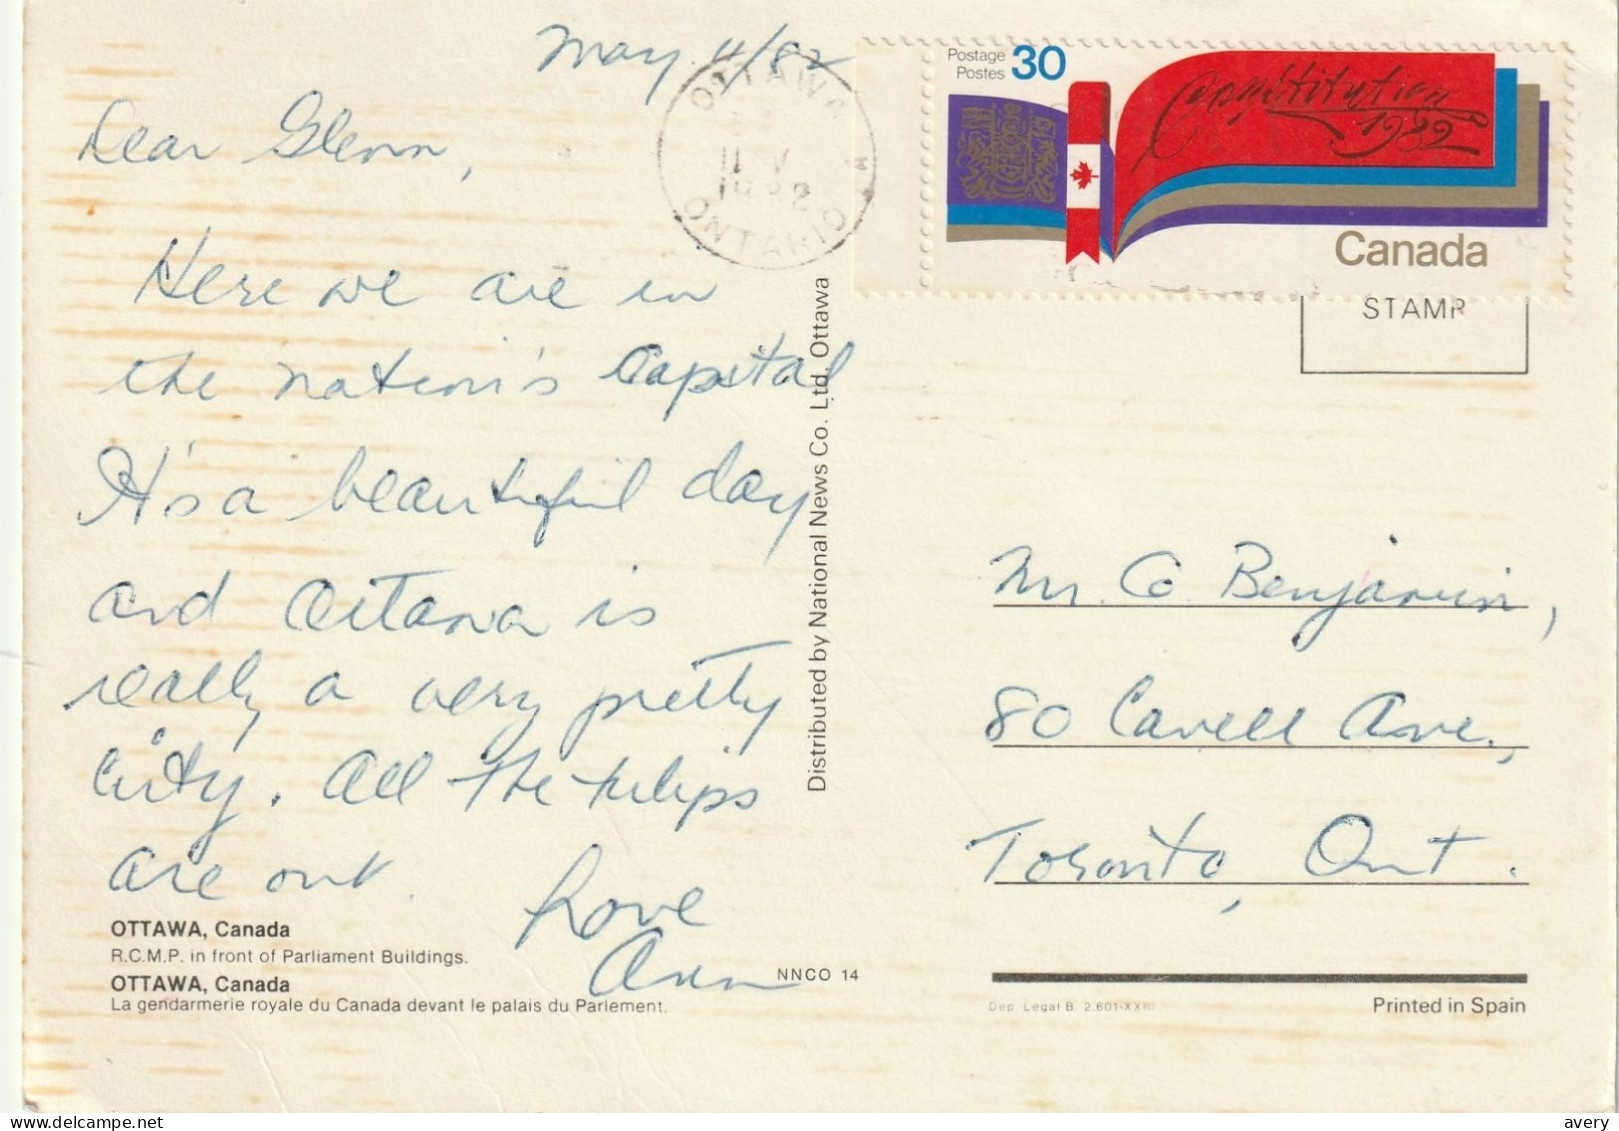 May 11/82
Dear Glenn,
Here we are in
the nation's Capital
It's a beautiful day
and Ottawa is
really a very pretty
city. All the tulips
are out.
Love
Ann
OTTAWA, Canada
R.C.M.P. in front of Parliament Buildings.
OTTAWA, Canada
La gendarmerie royale du Canada devant le palais du Parlement.
NNCO 14
Distributed by National News Co. Ltd. Ottawa
OTTAWA
11 V
1982
ONTARIO
Postage
Postes 30
Constitution
1982
Canada
STAMP
Mr. G. Benjamin,
80 Cavell Ave.,
Toronto, Ont.
Dep. Legal B. 2.601-XXIII
Printed in Spain
avery